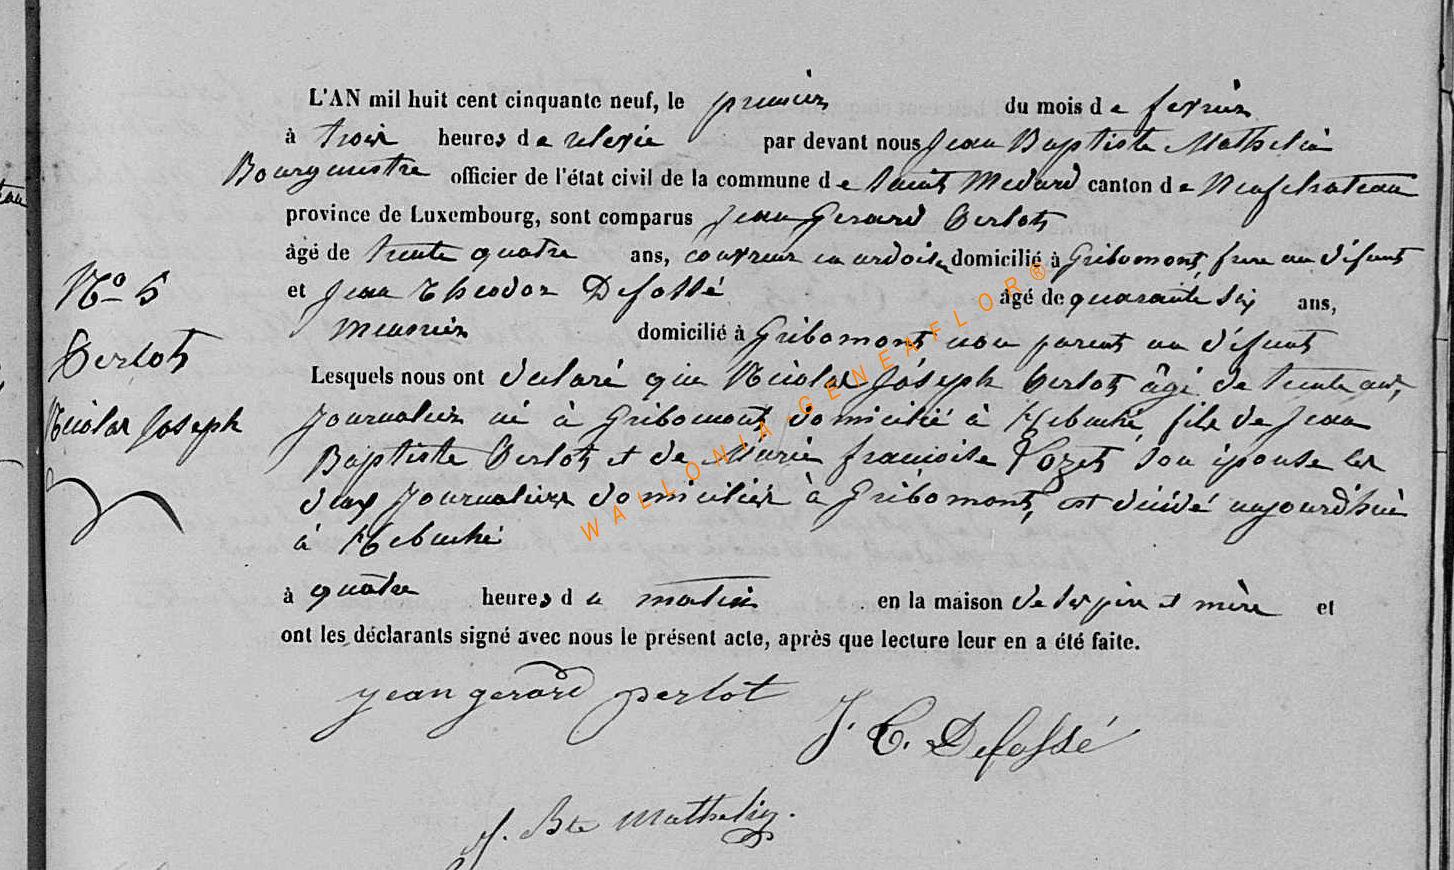 L'AN mil huit cent cinquante neuf, le premier du mois de fevrier
à trois heures de relevée par devant nous Jean Baptiste Mathelin
Bourgmestre officier de l'état civil de la commune de Saint Medard canton de Neufchateau
province de Luxembourg, sont comparus Jean Gerard Perlot
âgé de trente quatre ans, couvreur en ardoise domicilié à Gribomont, frere au défunt
et Jean Theodor Defossé âgé de quarante six ans,
meunier domicilié à Gribomont non parent au défunt
Lesquels nous ont déclaré que Nicolas Joseph Perlot âgé de trente ans,
journalier né à Gribomont domicilié à , fils de Jean
Baptiste Perlot et de Marie francoise Pozet son épouse les
deux journaliers domiciliés à Gribomont, est décédé aujourd'hui
à
à quatre heures du matin en la maison de ses père et mère et
ont les déclarants signé avec nous le présent acte, après que lecture leur en a été faite.
N° 5
Perlot
Nicolas Joseph
jean gerard perlot
J. T. Defossé
J. Bte Mathelin.
WALLONIA-GENEAFLOR®